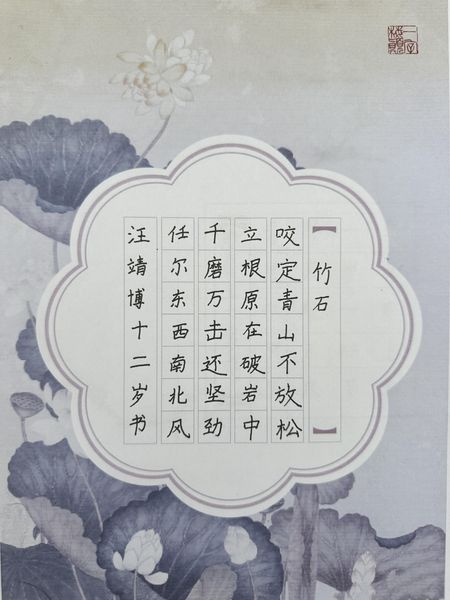 【竹石】
咬定青山不放松
立根原在破岩中
千磨万击还坚劲
任尔东西南北风
汪靖博十二岁书